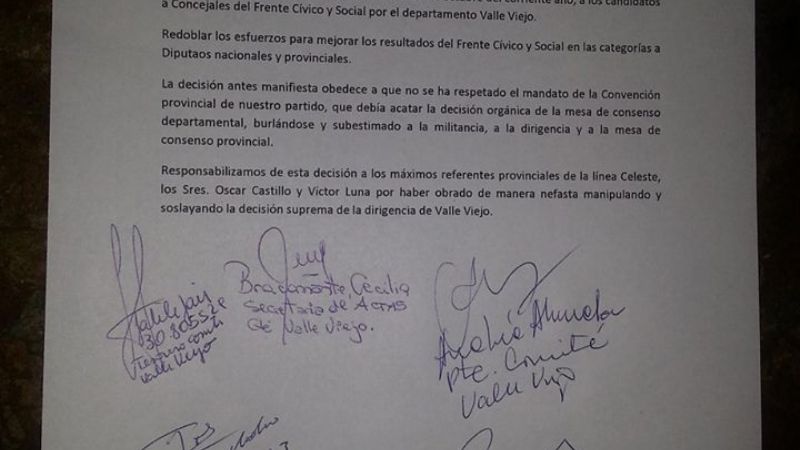 a Concejales del Frente Cívico y Social por el departamento Valle Viejo.
Redoblar los esfuerzos para mejorar los resultados del Frente Cívico y Social en las categorías a
Diputaos nacionales y provinciales.
La decisión antes manifiesta obedece a que no se ha respetado el mandato de la Convención
provincial de nuestro partido, que debía acatar la decisión orgánica de la mesa de consenso
departamental, burlándose y subestimado a la militancia, a la dirigencia y a la mesa de
consenso provincial.
Responsabilizamos de esta decisión a los máximos referentes provinciales de la línea Celeste,
los Sres. Oscar Castillo y Victor Luna por haber obrado de manera nefasta manipulando y
soslayando la decisión suprema de la dirigencia de Valle Viejo.
Bracamonte Cecilia
Secretaria de Actas
Valle Viejo.
Valle Viejo
Pte. Comité
Valle Viejo